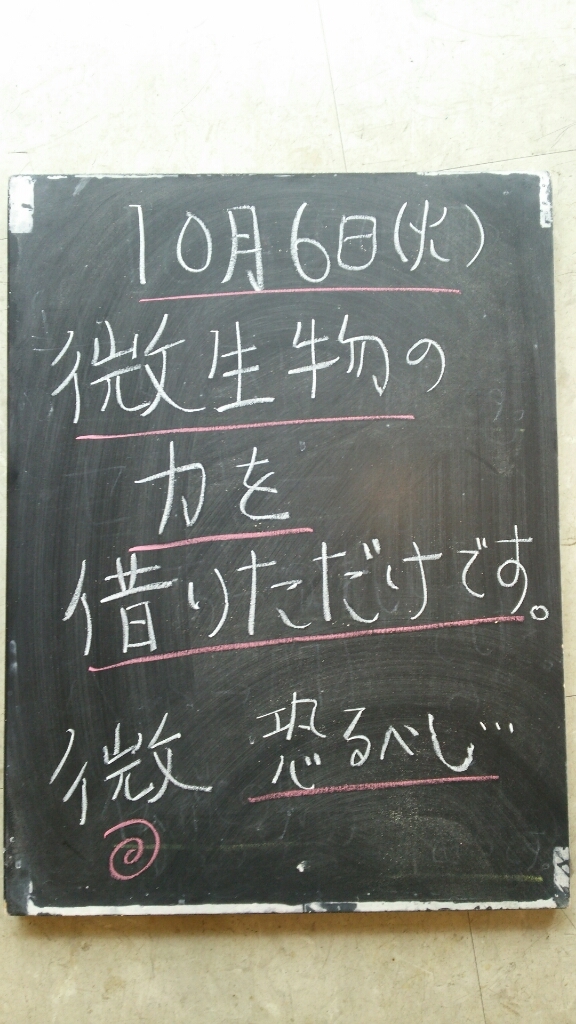 10月6日(火)
微生物の
力を
借りただけです。
微 恐るべし…